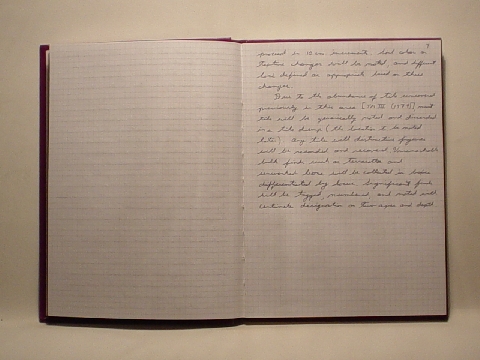 7
proceed in 10 cm increments. Soil color or
texture changes will be noted, and different
loci defined as appropriate based on these
changes.
Due to the abundance of tile uncovered
previously in this area [ (1999)] most
tile will be generically noted and discarded
in a tile dump (the location to be noted
later). Any tile with distinctive features
will be recorded and saved. Unremarkable
bulk finds such as terracotta and
unworked bone will be collected in boxes
differentiated by locus. Significant finds
will be tagged, numbered and noted with
coordinate designation on two axes and depth